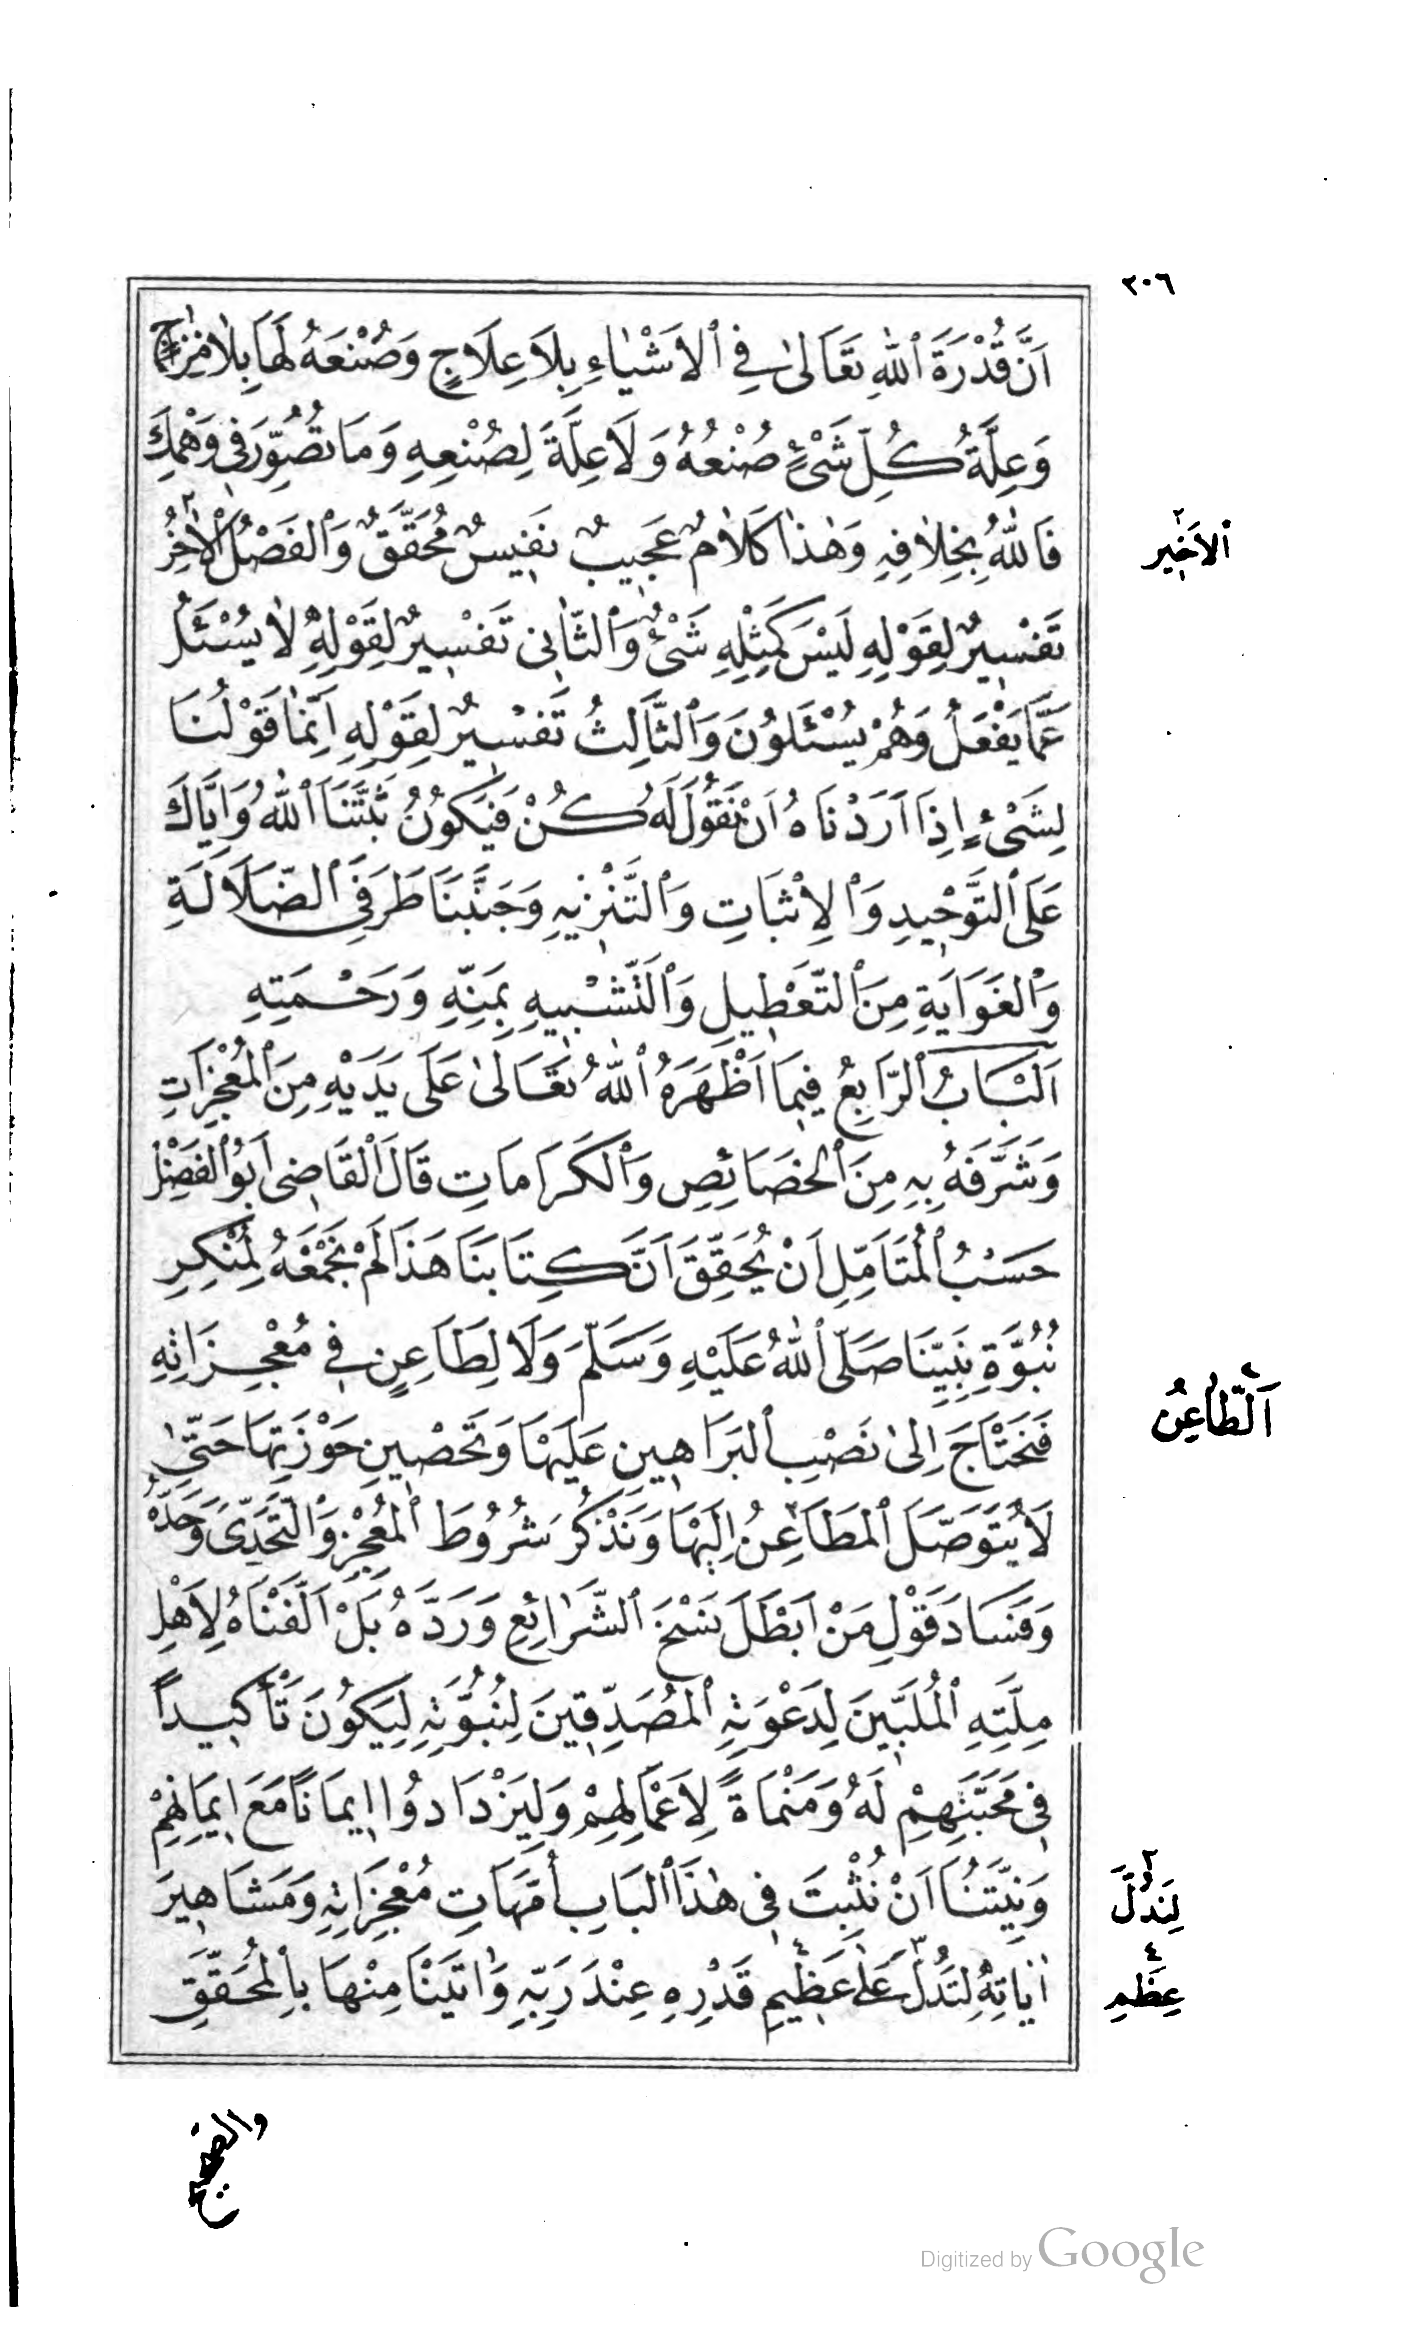 ٢٠٦
اَنَّ قُدْرَةَ ٱللهِ تَعَالىٰ فِى ٱلاَشْيٰاءِ بِلاَ عِلَاجٍ وَصُنْعَهُ لَهَا بِلاٰ مِزٰاجٍ
وَعِلَّةُ كُلِّ شَىْءٍ صُنْعُهُ وَلَا عِلَّةَ لِصُنْعِهِ وَمَا تُصُوِّرَ فِى وَهْمِكَ
فَاللهُ بِخِلاٰفِهِ وَهٰذٰا كَلاٰمٌ عَجِيبٌ نَفِيسٌ مُحَقَّقٌ وَٱلفَصْلُ ٱلاٰخِرُ
ٱلاَخِير
تَفْسِيرٌ لِقَوْلِهِ لَيْسَ كَمِثْلِهِ شَىْءٌ وَٱلثَّانِى تَفْسِيرٌ لِقَوْلِهِ لاٰ يُسْئَلُ
عَمَّا يَفْعَلُ وَهُمْ يُسْئَلُونَ وَٱلثَّالِثُ تَفْسِيرٌ لِقَوْلِهِ اِنَّمٰا قَوْلُنَا
لِشَىْءٍ اِذَا اَرَدْنَاهُ اَنْ نَقُولَ لَهُ كُنْ فَيَكُونُ ثَبَّتَنَا ٱللهُ وَاِيَّاكَ
عَلَى ٱلتَّوْحِيدِ وَٱلاِثْبَاتِ وَٱلتَّنْزِيهِ وَجَنَّبَنَا طَرَفَىِ ٱلضَّلاَلَةِ
وَٱلغَوَايَةِ مِنَ ٱلتَّعْطِيلِ وَٱلتَّشْبِيهِ بِمَنِّهِ وَرَحْمَتِهِ
اَلْبَابُ ٱلرَّابِعُ فِيمَا اَظْهَرَهُ ٱللهُ تَعَالىٰ عَلَى يَدَيْهِ مِنَ ٱلْمُعْجِزَاتِ
وَشَرَّفَهُ بِهِ مِنَ ٱلخَصَائِصِ وَٱلكَرَامَاتِ قَالَ ٱلْقَاضِى اَبُو ٱلفَضْلِ
حَسْبُ ٱلْمُتَاَمِّلِ اَنْ يُحَقِّقَ اَنَّ كِتَابَنَا هَذَا لَمْ نَجْمَعْهُ لِمُنْكِرِ
نُبُوَّةِ نَبِيِّنَا صَلَّى ٱللهُ عَلَيْهِ وَسَلَّمَ وَلَا لِطَاعِنٍ فِى مُعْجِزَاتِهِ
فَنَحْتَاجَ اِلىٰ نَصْبِ ٱلبَرَاهِينِ عَلَيْهَا وَتَحْصِينِ حَوْزَتِهَا حَتّىٰ
اَلطّاعِنُ
لَا يَتَوَصَّلَ ٱلمَطَاعِنُ اِلَيْهَا وَنَذْكُرَ شُرُوطَ ٱلْمُعْجِزِ وَٱلتَّحَدِّىَ وَحَدَّهُ
وَفَسَادَ قَوْلِ مَنْ اَبْطَلَ نَسْخَ ٱلشَّرٰائِعِ وَرَدَّهُ بَلْ اَلَّفْنَاهُ لِاَهْلِ
مِلَّتِهِ ٱلْمُلَبِّينَ لِدَعْوَتِهِ ٱلمُصَدِّقِينَ لِنُبُوَّتِهِ لِيَكُونَ تَأْكِيداً
فِى مَحَبَّتِهِمْ لَهُ وَمَنْمَاةً لِاَعْمَالِهِمْ وَلِيَزْدَادُوا اِيمَانًا مَعَ اِيمَانِهِمْ
وَنِيَّتُنَا اَنْ نُثْبِتَ فِى هٰذَا ٱلبَابِ أُمَّهَاتِ مُعْجِزَاتِهِ وَمَشَاهِيرَ
لِنَدُلَّ
اٰيَاتِهِ لِتَدُلَّ عَلىٰ عَظِيمِ قَدْرِهِ عِنْدَ رَبِّهِ وَاَتَيْنَا مِنْهَا بِالْمُحَقَّقِ
عِظَمِ
والصحيح
Digitized by Google